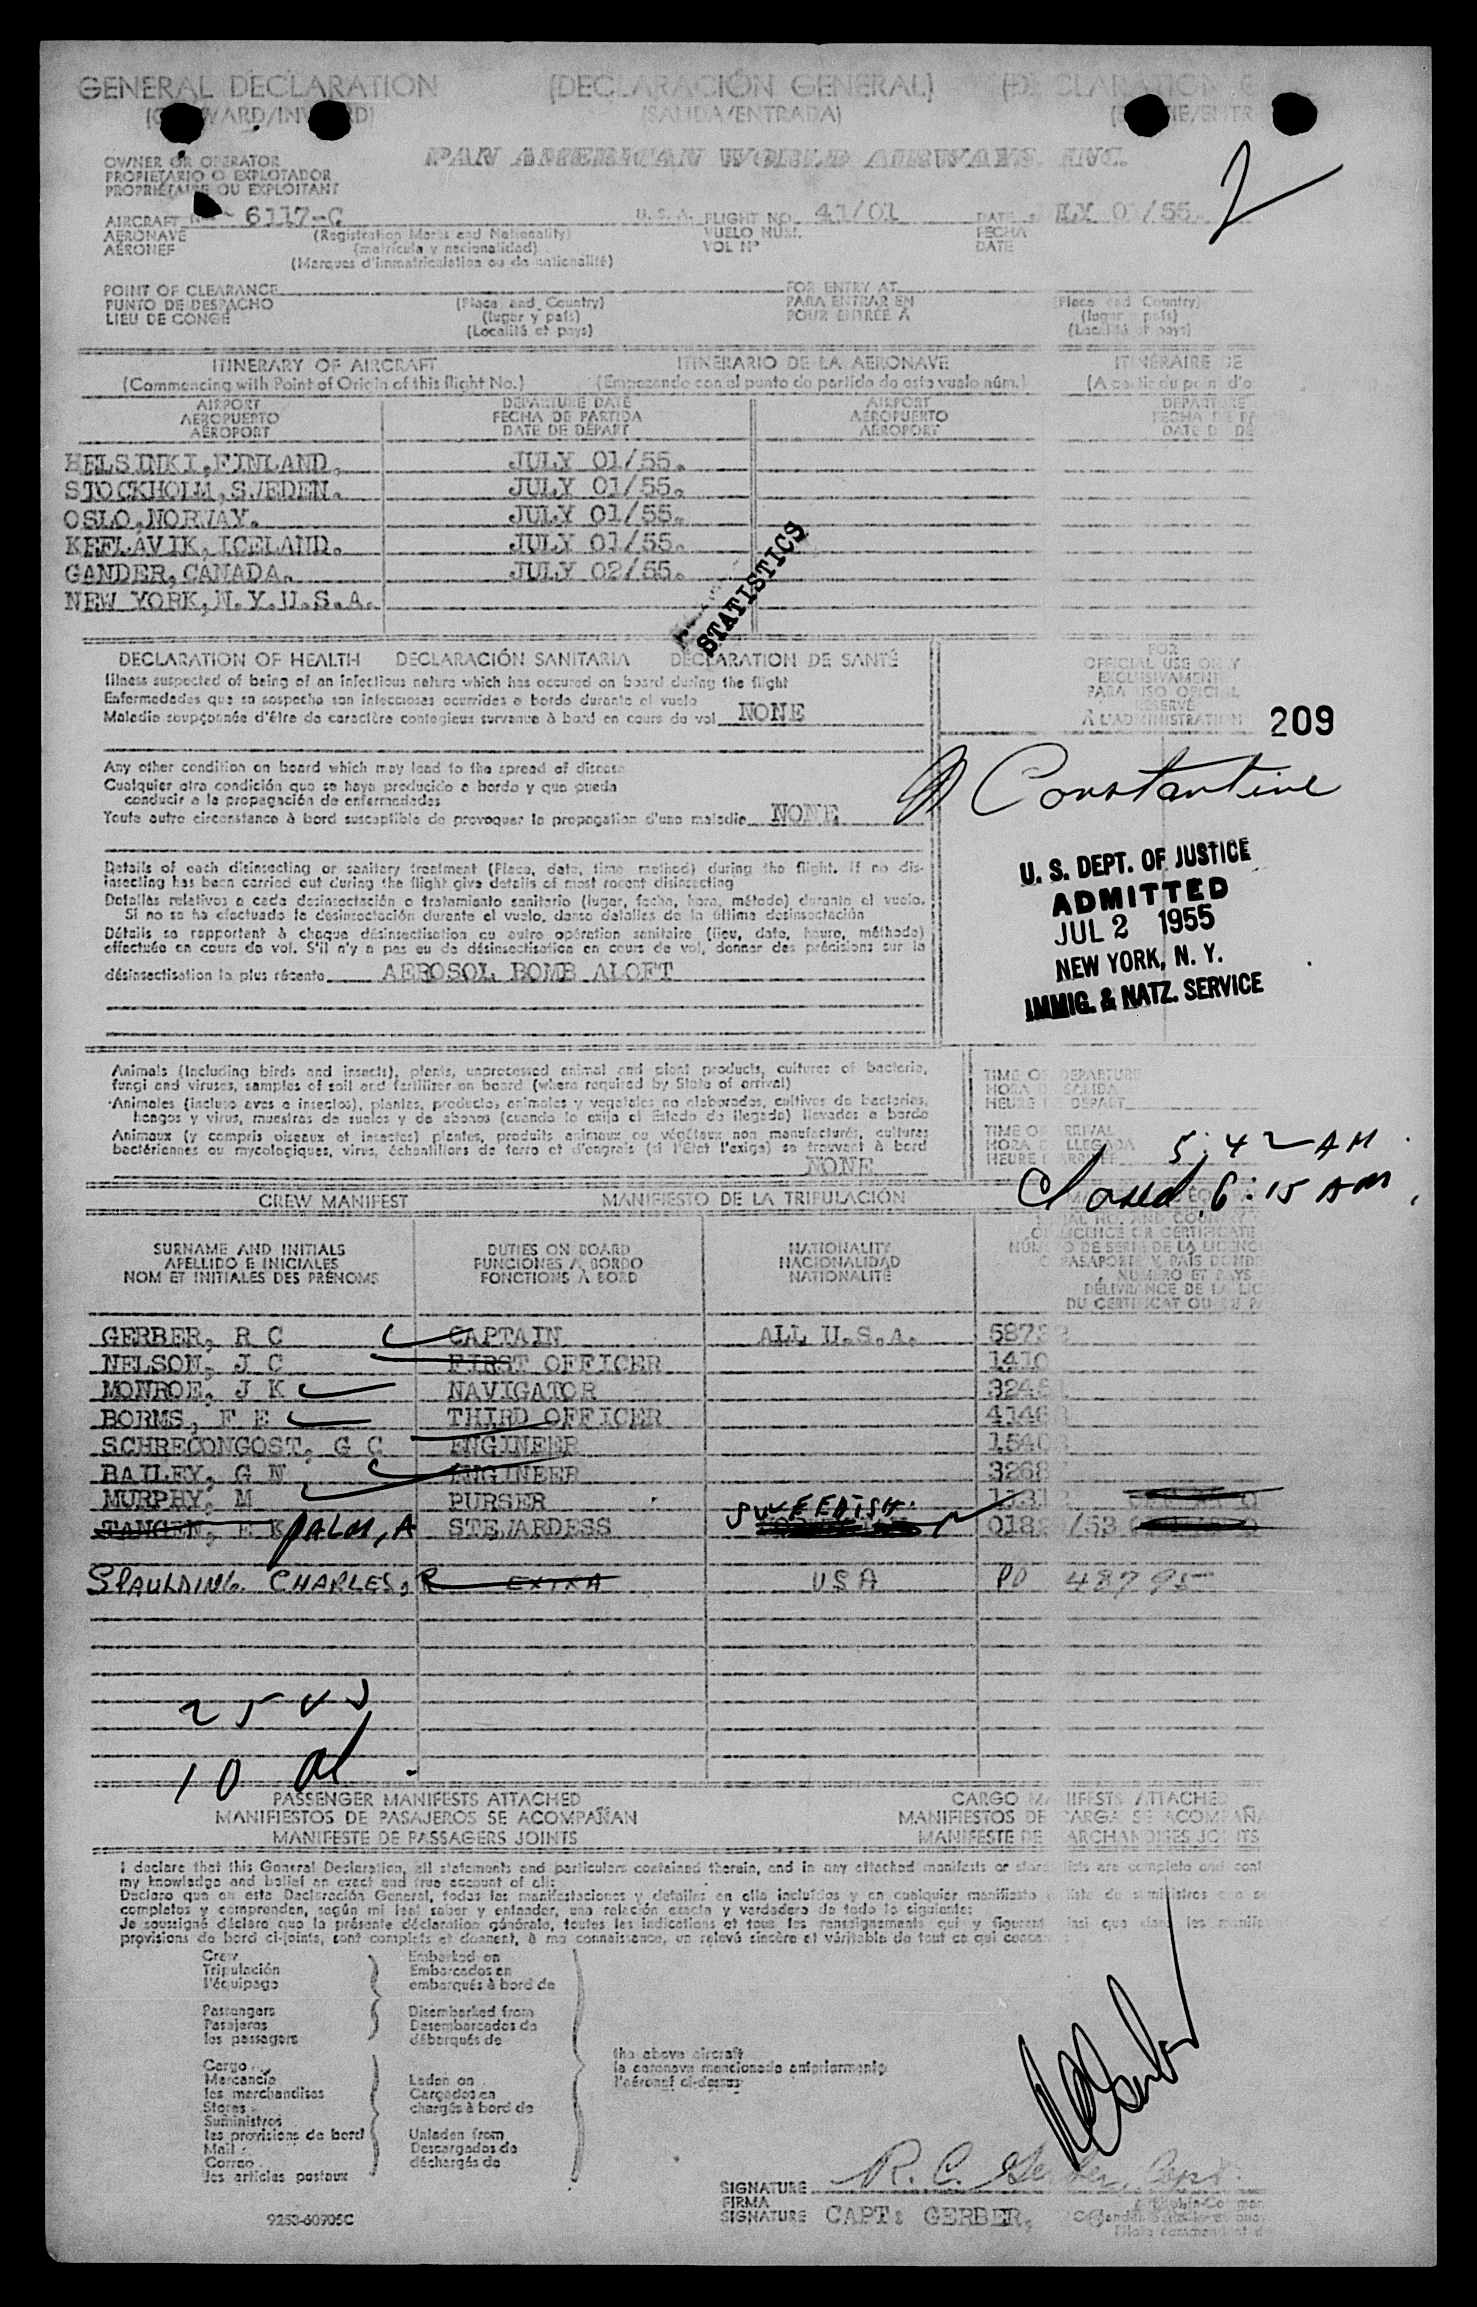 GENERAL DECLARATION (DECLARACIÓN GENERAL)
(SALIDA/ENTRADA)
OWNER OR OPERATOR PAN AMERICAN WORLD AIRWAYS, INC.
PROPIETARIO O EXPLOTADOR
PROPRIÉTAIRE OU EXPLOITANT
2
AIRCRAFT 6117-C U.S.A. FLIGHT NO. 41/01 DATE
AERONAVE (Registration Marks and Nationality) VUELO NÚM. FECHA
AÉRONEF (matrícula y nacionalidad) VOL Nº DATE
(Marques d'immatriculation ou de nationalité)
POINT OF CLEARANCE FOR ENTRY AT
PUNTO DE DESPACHO (Place and Country) PARA ENTRAR EN (Place and Country)
LIEU DE CONGÉ (lugar y país) POUR ENTRÉE À
(Localité et pays)
ITINERARY OF AIRCRAFT ITINERARIO DE LA AERONAVE
(Commencing with Point of Origin of this flight No.) (Empezando con el punto de partida de este vuelo núm.)
AIRPORT DEPARTURE DATE AIRPORT
AEROPUERTO FECHA DE PARTIDA AEROPUERTO
AÉROPORT DATE DE DÉPART AÉROPORT
HELSINKI, FINLAND. JULY 01/55.
STOCKHOLM, SWEDEN. JULY 01/55.
OSLO, NORWAY. JULY 01/55.
KEFLAVIK, ICELAND. JULY 01/55.
GANDER, CANADA. JULY 02/55.
NEW YORK, N.Y.U.S.A.
STATISTICS
DECLARATION OF HEALTH DECLARACIÓN SANITARIA DÉCLARATION DE SANTÉ
Illness suspected of being of an infectious nature which has occured on board during the flight
Enfermedades que se sospecha son infecciosas ocurridas a bordo durante el vuelo
Maladie soupçonnée d'être de caractère contagieux survenue à bord en cours de vol NONE
FOR
OFFICIAL USE ONLY
209
Any other condition on board which may lead to the spread of disease
Cualquier otra condición que se haya producido a bordo y que pueda
conducir a la propagación de enfermedades
Toute autre circonstance à bord susceptible de provoquer la propagation d'une maladie NONE
Constantine
Details of each disinsecting or sanitary treatment (Place, date, time method) during the flight. If no dis-
insecting has been carried out during the flight give details of most recent disinsecting
Detalles relativos a cada desinsectación o tratamiento sanitario (lugar, fecha, hora, método) durante el vuelo.
Si no se ha efectuado la desinsectación durante el vuelo, danse detalles de la última desinsectación
Détails se rapportant à chaque désinsectisation ou autre opération sanitaire (lieu, date, heure, méthode)
effectuée en cours de vol. S'il n'y a pas eu de désinsectisation en cours de vol, donner des précisions sur la
désinsectisation la plus récente AEROSOL BOMB ALOFT
U. S. DEPT. OF JUSTICE
ADMITTED
JUL 2 1955
NEW YORK, N. Y.
IMMIG. & NATZ. SERVICE
Animals (including birds and insects), plants, unprocessed animal and plant products, cultures of bacteria,
fungi and viruses, samples of soil and fertilizer on board (where required by State of arrival)
Animales (incluso aves e insectos), plantas, productos animales y vegetales no elaborados, cultivos de bacterias,
hongos y virus, muestras de suelos y de abonos (cuando lo exija el Estado de llegada) llevados a bordo
Animaux (y compris oiseaux et insectes) plantes, produits animaux ou végétaux non manufacturés, cultures
bactériennes ou mycologiques, virus, échantillons de terre et d'engrais (si l'État l'exige) se trouvant à bord
NONE
5:42 AM
Closed 6:15 AM
CREW MANIFEST MANIFIESTO DE LA TRIPULACIÓN
SURNAME AND INITIALS DUTIES ON BOARD NATIONALITY
APELLIDO E INICIALES FUNCIONES A BORDO NACIONALIDAD
NOM ET INITIALES DES PRÉNOMS FONCTIONS À BORD NATIONALITÉ
GERBER, R C CAPTAIN ALL U.S.A.
NELSON, J C FIRST OFFICER
MONROE, J K NAVIGATOR
BORMS, F E THIRD OFFICER
SCHRECONGOST, G C ENGINEER
BAILEY, G N ENGINEER
MURPHY, M PURSER
PALM, A STEWARDESS SWEEDISH
SPAULDING CHARLES, R EXTRA USA PO 48795
10
PASSENGER MANIFESTS ATTACHED
MANIFIESTOS DE PASAJEROS SE ACOMPAÑAN
MANIFESTE DE PASSAGERS JOINTS
I declare that this General Declaration, all statements and particulars contained therein, and in any attached manifests
my knowledge and belief an exact and true account of all:
Declaro que en esta Declaración General, todas las manifestaciones y detalles en ella incluídos y en cualquier manifiesto
completos y comprenden, según mi leal saber y entender, una relación exacta y verdadera de todo lo siguiente:
Je soussigné déclare que la présente déclaration générale, toutes les indications et tous les renseignements qui y figurent
provisions de bord ci-joints, sont complets et donnent, à ma connaissance, un relevé sincère et véritable de tout ce qui
Crew Embarked on
Tripulación Embarcados en
l'équipage embarqués à bord de
Passengers Disembarked from
Pasajeros Desembarcados de
les passagers débarqués de
the above aircraft
la aeronave mencionada anteriormente
l'aéronef ci-dessus
Cargo
Mercancía Laden on
les marchandises Cargados en
Stores chargés à bord de
Suministros
les provisions de bord Unladen from
Mail Descargados de
Correo déchargés de
les articles postaux
SIGNATURE R. C. Gerber, Capt.
FIRMA
SIGNATURE CAPT: GERBER,
9253-60905C